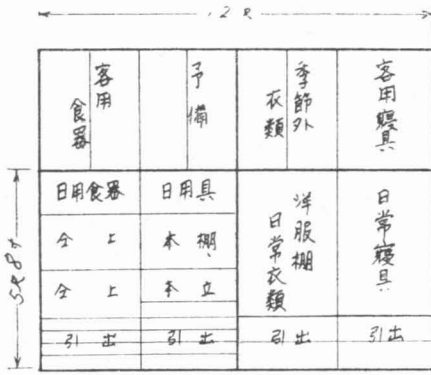 12尺
客用
食器
予備
季節外
衣類
客用寝具
日用食器
日用具
洋服棚
日常衣類
日常寝具
仝上
本棚
仝上
本立
引出
引出
引出
引出
5尺8寸